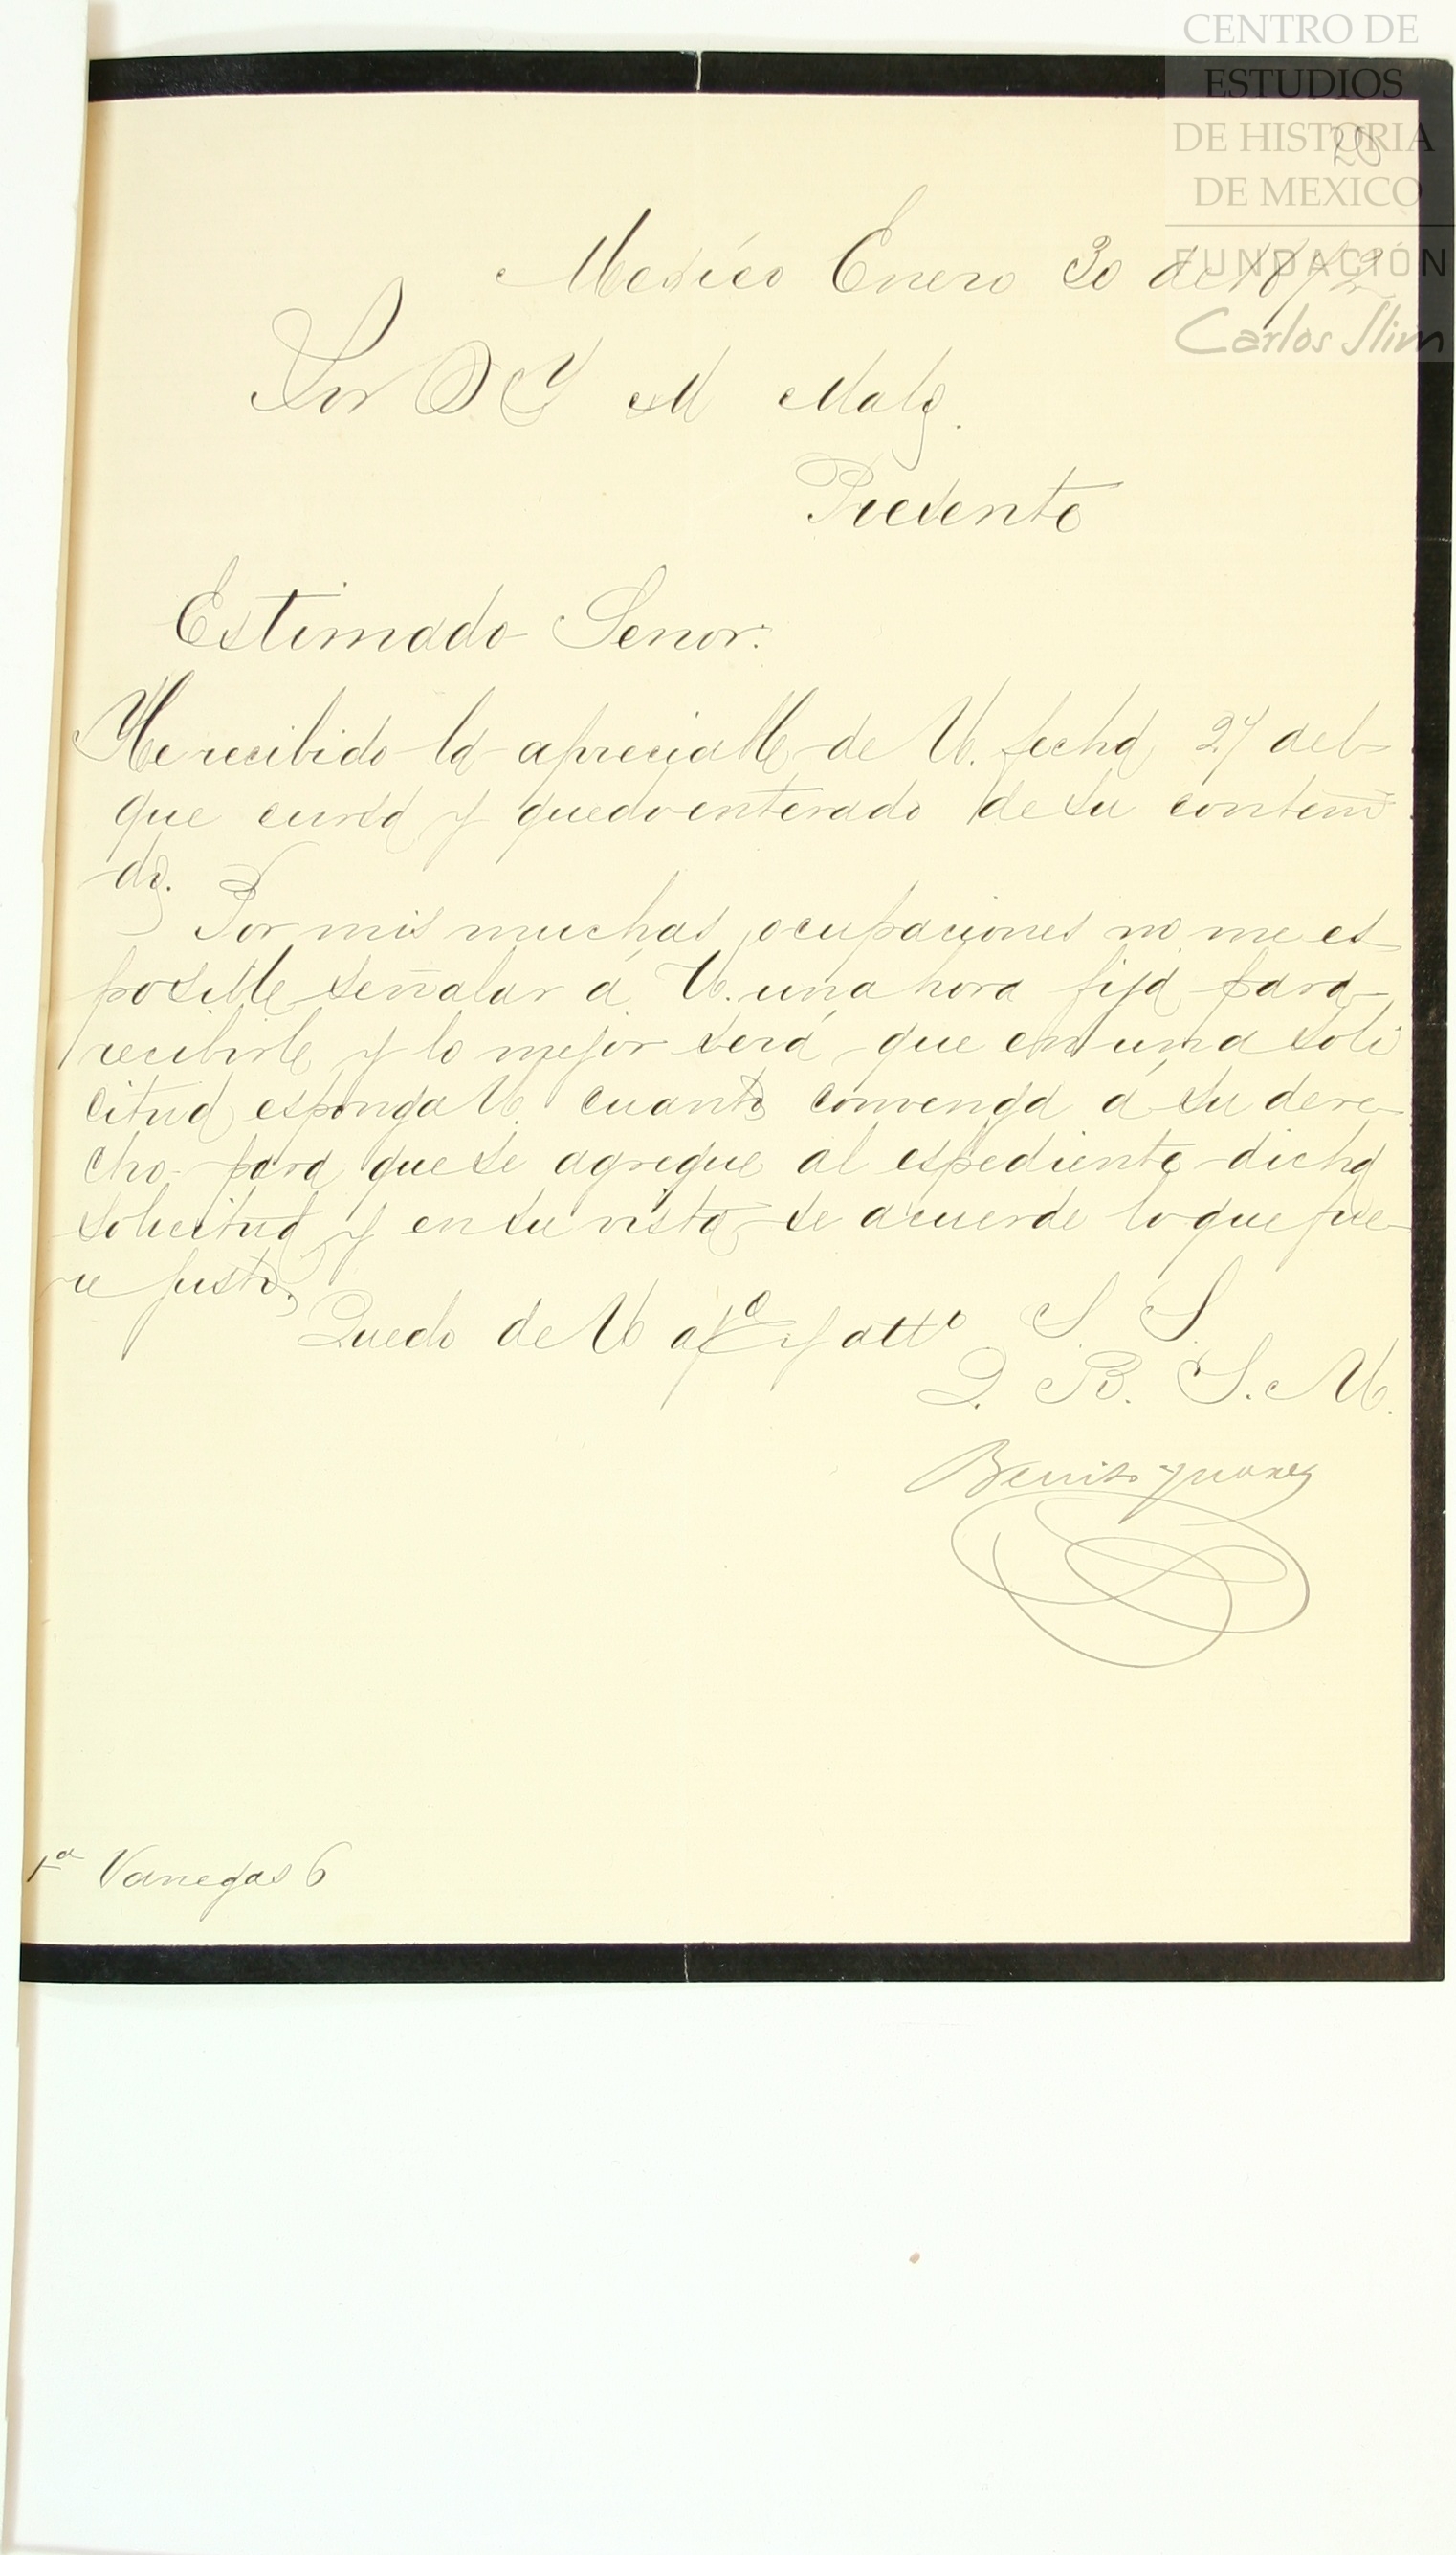 CENTRO DE
ESTUDIOS
DE HISTORIA
DE MEXICO
FUNDACIÓN
Carlos Slim
20
Mexico Enero 30 de 1872
Sor D Y M Mata.
Presente
Estimado Senor:
He recibido la apreciable de U. fecha 27 del
que cursa y quedo enterado de su conteni
do.
Por mis muchas ocupaciones no me es
posible señalar á U. una hora fija para
recibirle y lo mejor será que en una soli
citud esponga U. cuanto convenga á su dere
cho para que se agregue al espediente dicha
solicitud y en su vista se acuerde lo que fue
re justo.
Quedo de U afo y atto S. S.
Q. B. S. M.
Benito Juarez
1a Vanegas 6